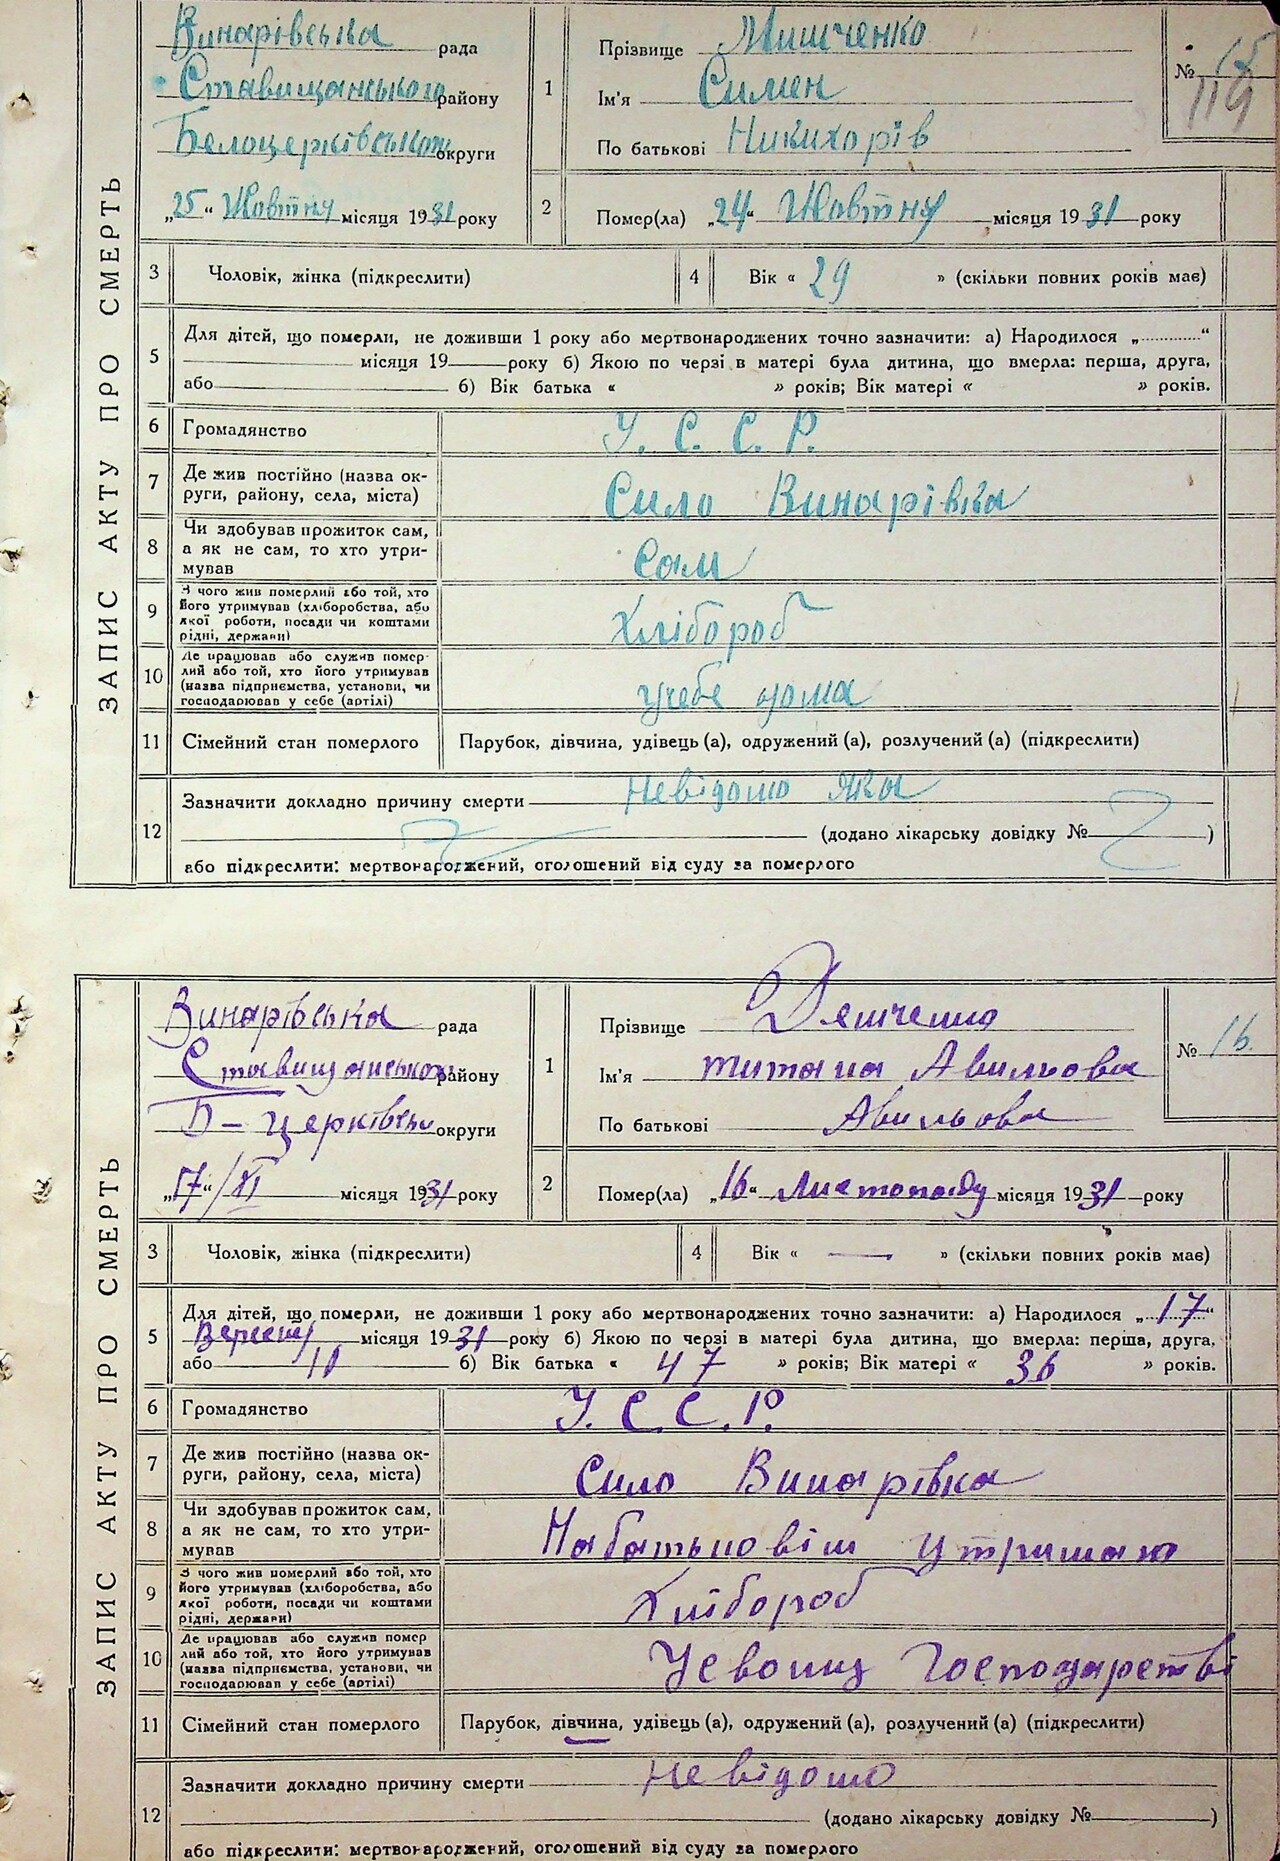 ЗАПИС АКТУ ПРО СМЕРТЬ
Винарівська рада
Ставищанського району
Белоцерківської округи
„25“ Жовтня місяця 1931 року
1
Прізвище Мищенко
Ім'я Симен
По батькові Никихорів
№ 15
119
2
Помер(ла) „24“ Жовтня місяця 1931 року
3 Чоловік, жінка (підкреслити)
4 Вік « 29 » (скільки повних років має)
5 Для дітей, що померли, не доживши 1 року або мертвонароджених точно зазначити: а) Народилося „............“
місяця 19 року б) Якою по черзі в матері була дитина, що вмерла: перша, друга,
або б) Вік батька « » років; Вік матері « » років.
6 Громадянство У. С. С. Р.
7 Де жив постійно (назва ок-
руги, району, села, міста) Сило Винарівка
8 Чи здобував прожиток сам,
а як не сам, то хто утри-
мував Сам
9 З чого жив померлий або той, хто
його утримував (хліборобства, або
якої роботи, посади чи коштами
рідні, держави) Хлібороб
10 Де працював або служив помер-
лий або той, хто його утримував
(назва підприємства, установи, чи
господарював у себе (артілі) усебе дома
11 Сімейний стан померлого Парубок, дівчина, удівець (а), одружений (а), розлучений (а) (підкреслити)
12 Зазначити докладно причину смерти Невідомо Яка
(додано лікарську довідку № )
або підкреслити: мертвонароджений, оголошений від суду за померлого
ЗАПИС АКТУ ПРО СМЕРТЬ
Винарівська рада
Ставищанського району
Б-церківськ округи
„17“/XI місяця 1931 року
1
Прізвище
Ім'я титана Авильова
По батькові Авильова
№ 16.
2
Помер(ла) „16“ Листопаду місяця 1931 року
3 Чоловік, жінка (підкреслити)
4 Вік « — » (скільки повних років має)
5 Для дітей, що померли, не доживши 1 року або мертвонароджених точно зазначити: а) Народилося „17“
Вересня місяця 1931 року б) Якою по черзі в матері була дитина, що вмерла: перша, друга,
або 10 б) Вік батька « 47 » років; Вік матері « 36 » років.
6 Громадянство У. С. С. Р.
7 Де жив постійно (назва ок-
руги, району, села, міста) Сило Винарівка
8 Чи здобував прожиток сам,
а як не сам, то хто утри-
мував Набатьковім утриманю
9 З чого жив померлий або той, хто
його утримував (хліборобства, або
якої роботи, посади чи коштами
рідні, держави) Хлібороб
10 Де працював або служив помер
лий або той, хто його утримував
(назва підприємства, установи, чи
господарював у себе (артілі) Усвоиц Господарстві
11 Сімейний стан померлого Парубок, дівчина, удівець (а), одружений (а), розлучений (а) (підкреслити)
12 Зазначити докладно причину смерти Невідомо
(додано лікарську довідку № )
або підкреслити: мертвонароджений, оголошений від суду за померлого